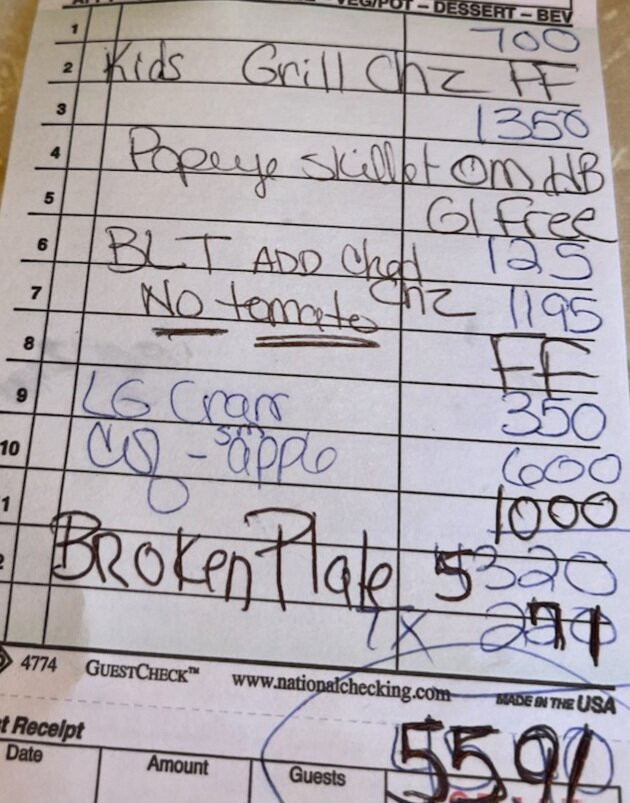 VEG/POT – DESSERT – BEV
1 700
2 Kids Grill Chz FF
3 1350
4 Popeye Skillet OM HB
5 Gl Free
6 BLT ADD Ched 125
7 NO tomato Chz 1195
8 FF
9 LG Cran 350
10 sm apple 600
1000
Broken Plate 5320
TX 271
4774 GUESTCHECK™ www.nationalchecking.com MADE IN THE USA
Receipt
Date Amount Guests
5591